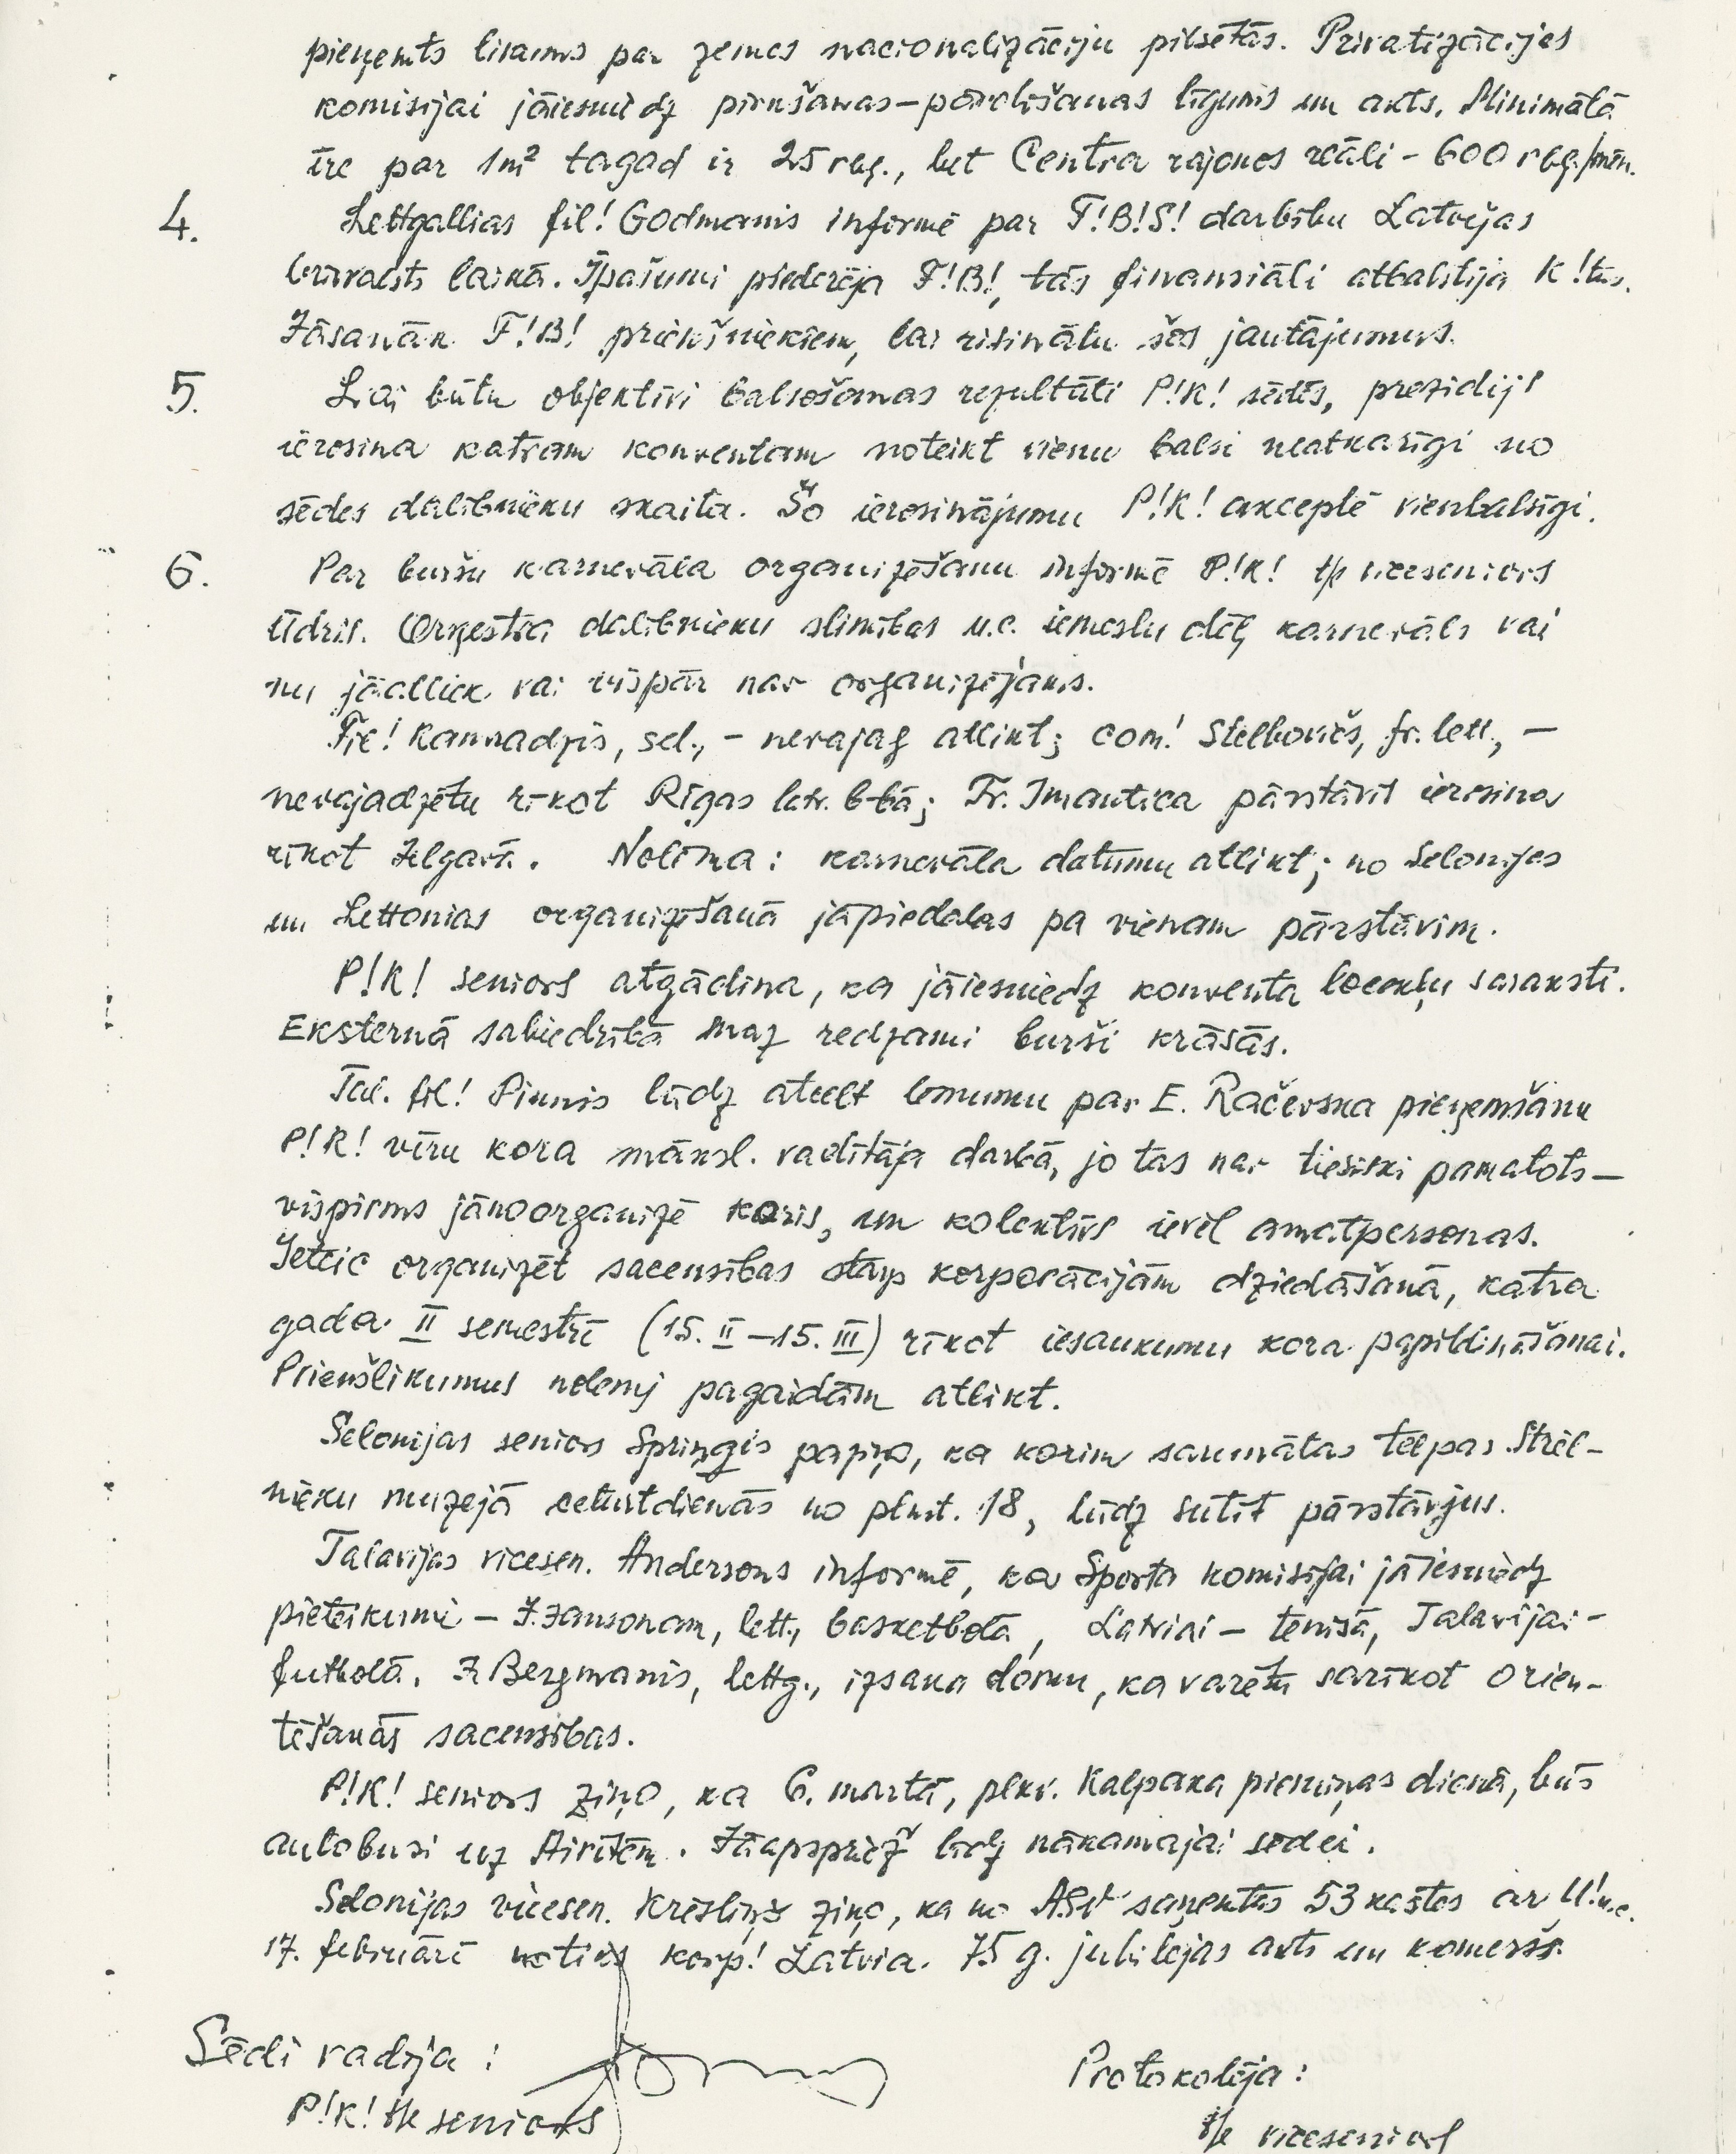 pieņemts likums par zemes nacionalizāciju pilsētās. Privatizācijas
komisijai jāiesniedz pirkšanas-pārdošanas līgums un akts. Minimālā
īre par 1m² tagad ir 25 rbļ., bet Centra rajonos reāli - 600 rbļ./mēn.
4. Lettgallias fil! Godmanis informē par F!B!S! darbību Latvijas
brīvvalsts laikā. Īpašumi piederēja F!B!, tās finansiāli atbalstīja K!tus.
Jāsanāk F!B! priekšniekiem, lai risinātu šos jautājumus.
5. Lai būtu objektīvi balsošanas rezultāti P!K! sēdēs, prezidijs
ierosina katram konventam noteikt vienu balsi neatkarīgi no
sēdes dalībnieku skaita. Šo ierosinājumu P!K! akceptē vienbalsīgi.
6. Par buršu karnevāla organizēšanu informē P!K! t/p viceseniors
Ūdris. Orķestra dalībnieku slimības u.c. iemeslu dēļ karnevāls vai
nu jāatliek vai vispār nav organizējams.
Fil! Kamradzis, sel., - nevajag atlikt; com! Stelbovičs, fr. lett., -
nevajadzētu rīkot Rīgas latv. b-bā; Fr. Imantica pārstāvis ierosina
rīkot Jelgavā. Nolēma: karnevāla datumu atlikt; no Selonijas
un Lettonias organizēšanā jāpiedalas pa vienam pārstāvim.
P!K! seniors atgādina, ka jāiesniedz konventa locekļu saraksti.
Eksternā sabiedrībā maz redzami burši krāsās.
Tal. fil! Pinnis lūdz atcelt lēmumu par E. Račevska pieņemšanu
P!K! vīru kora māksl. vadītāja darbā, jo tas nav tiesiski pamatots-
vispirms jānoorganizē koris, un kolektīvs ievēl amatpersonas.
Ieteic organizēt sacensības starp korporācijām dziedāšanā, katra
gada II semestrī (15. II-15. III) rīkot iesaukumu kora papildināšanai.
Priekšlikumus nolemj pagaidām atlikt.
Selonijas seniors Spriņģis paziņo, ka korim sarunātas telpas Strēl-
nieku muzejā ceturtdienās no plkst. 18, lūdz sūtīt pārstāvjus.
Talavijas vicesen. Andersons informē, ka Sporta komisijai jāiesniedz
pieteikumi - J. Jansonam, lett., basketbolā, Latviai - tenisā, Talavijai -
futbolā. J. Bergmanis, lettg., izsaka domu, ka varētu sarīkot orien-
tēšanās sacensības.
P!K! seniors ziņo, ka 6. martā, plkv. Kalpaka piemiņas dienā, būs
autobusi uz Airītēm. Jāapspriež līdz nākamajai sēdei.
Selonijas vicesen. Krēsliņš ziņo, ka no ASV saņemtas 53 kastes ar U!u.c.
17. februārī notiks korp! Latvia. 75 g. jubilejas akts un komeršs.
Sēdi vadīja: Protokolēja:
P!K! t/p seniors t/p viceseniors